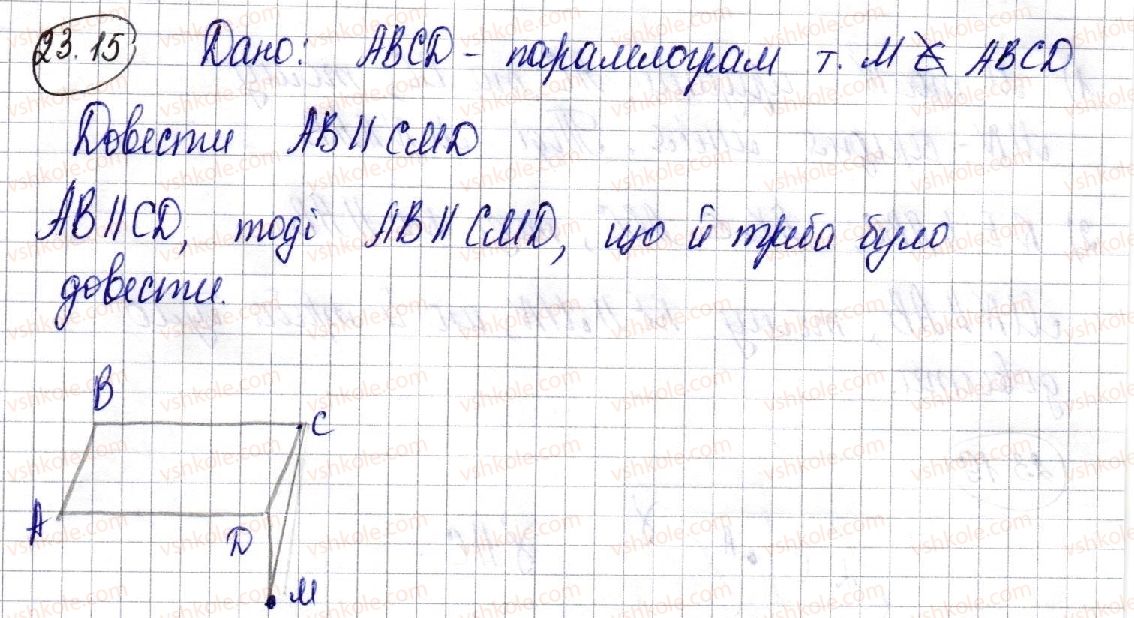 23.15 Дано: ABCD - паралелограм т. M ∉ ABCD
Довести AB || CMD
AB || CD, тоді AB || CMD, що й треба було
довести.
B
C
A
D
M